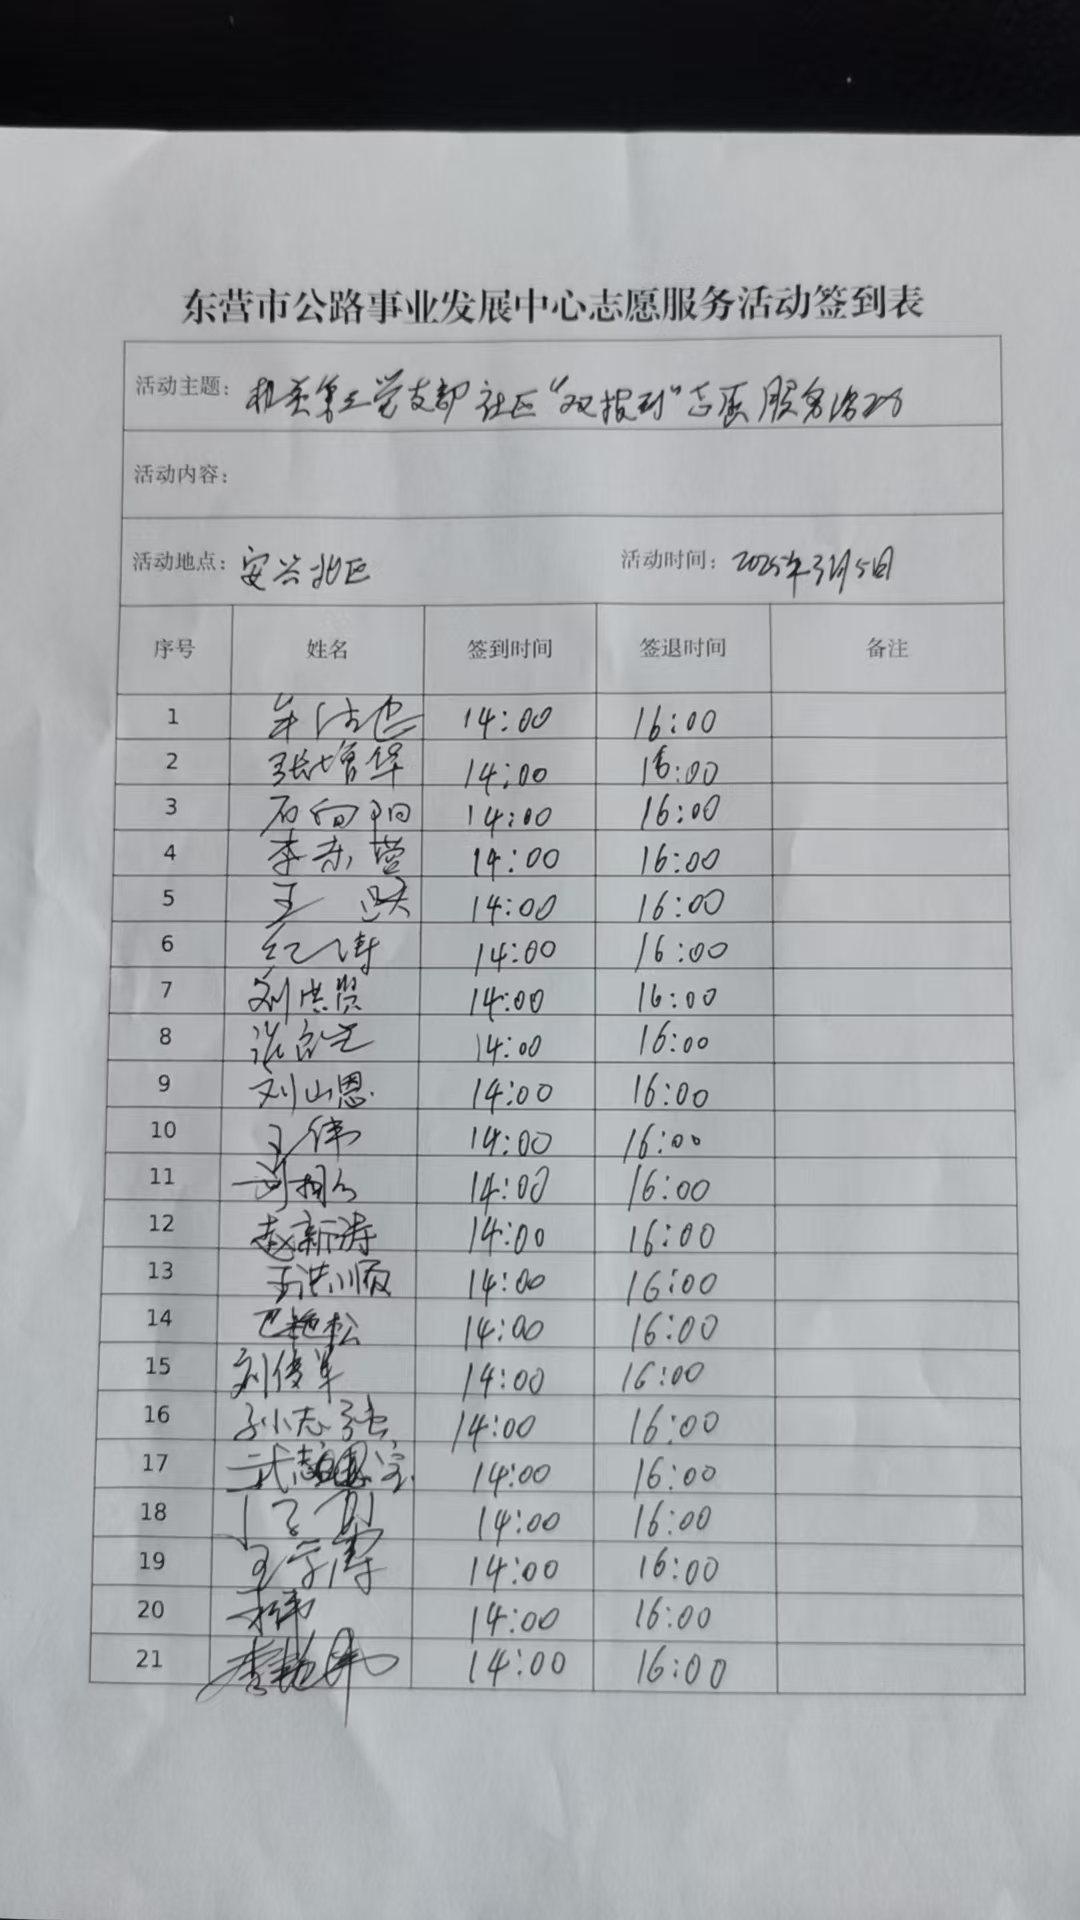 东营市公路事业发展中心志愿服务活动签到表
活动主题：机关第三党支部社区“双报到”志愿服务活动
活动内容：
活动地点：安兴北区 活动时间：2025年3月5日
序号 姓名 签到时间 签退时间 备注
1 14:00 16:00
2 张增华 14:00 16:00
3 石向阳 14:00 16:00
4 李东营 14:00 16:00
5 王 14:00 16:00
6 纪涛 14:00 16:00
7 刘洪贤 14:00 16:00
8 张 14:00 16:00
9 刘山恩 14:00 16:00
10 王伟 14:00 16:00
11 14:00 16:00
12 赵新涛 14:00 16:00
13 王洪顺 14:00 16:00
14 巴艳松 14:00 16:00
15 刘俊军 14:00 16:00
16 孙志强 14:00 16:00
17 武 14:00 16:00
18 14:00 16:00
19 王学涛 14:00 16:00
20 14:00 16:00
21 李 14:00 16:00